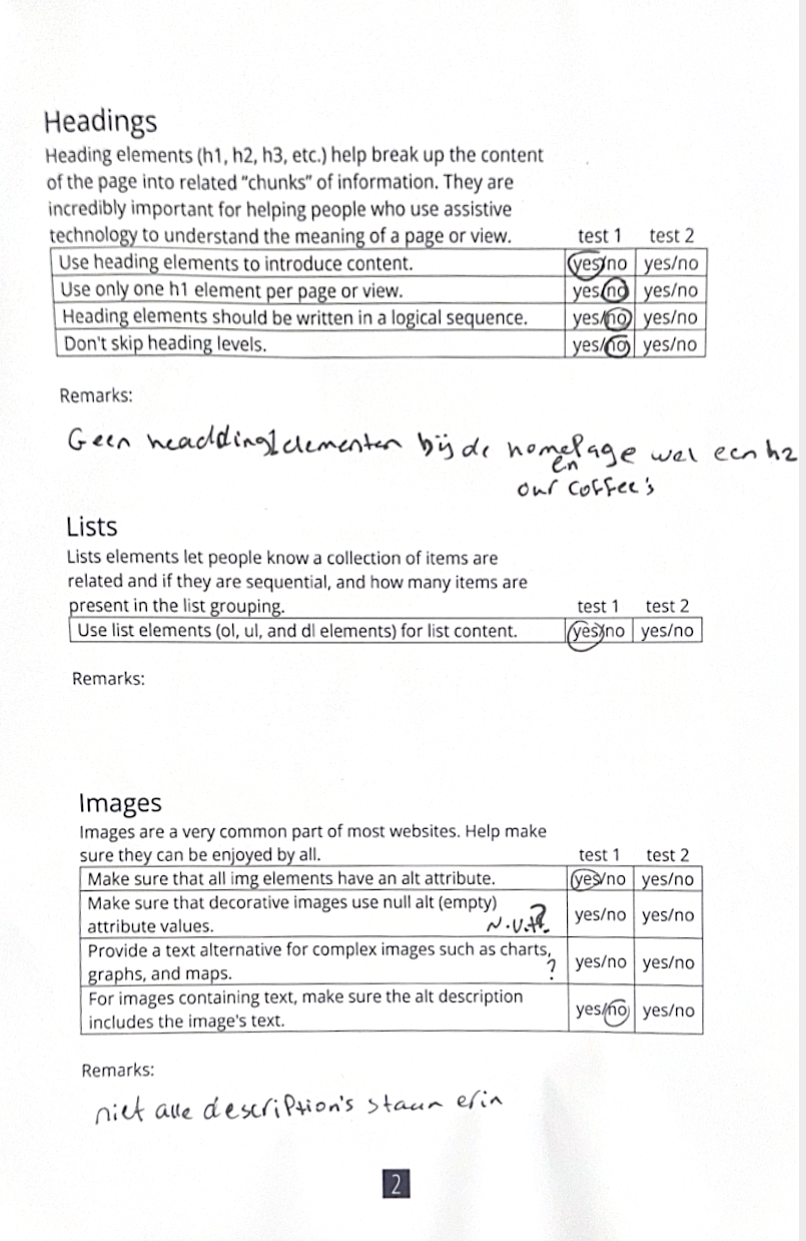 Headings
Heading elements (h1, h2, h3, etc.) help break up the content
of the page into related "chunks" of information. They are
incredibly important for helping people who use assistive
technology to understand the meaning of a page or view. test 1 test 2
Use heading elements to introduce content. yes/no yes/no
Use only one h1 element per page or view. yes/no yes/no
Heading elements should be written in a logical sequence. yes/no yes/no
Don't skip heading levels. yes/no yes/no
Remarks:
Geen headding elementen bij de homepage wel een h2
en
our coffee's
Lists
Lists elements let people know a collection of items are
related and if they are sequential, and how many items are
present in the list grouping. test 1 test 2
Use list elements (ol, ul, and dl elements) for list content. yes/no yes/no
Remarks:
Images
Images are a very common part of most websites. Help make
sure they can be enjoyed by all. test 1 test 2
Make sure that all img elements have an alt attribute. yes/no yes/no
Make sure that decorative images use null alt (empty)
attribute values. ? yes/no yes/no
Provide a text alternative for complex images such as charts,
graphs, and maps. ? yes/no yes/no
For images containing text, make sure the alt description
includes the image's text. yes/no yes/no
Remarks:
niet alle description's staan erin
2